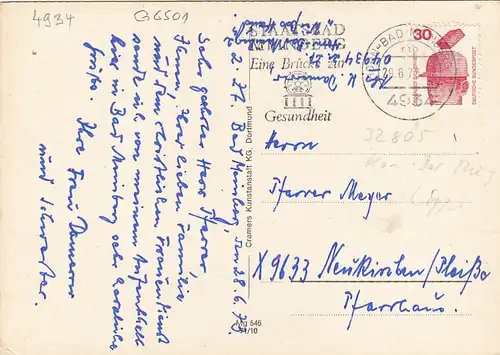 4934
G6501
STAATSBAD
MEINBERG
Eine Brücke zur
Gesundheit
30
DEUTSCHE BUNDESPOST
HORN-BAD
28.6.7
4934
z. Zt. Bad Meinberg, den 28.6.73.
Sehr geehrter Herr Pfarrer,
Ihnen, Ihrer lieben Familie
und dem christlichen Frauendienst
sende ich von meinem Aufenthalt
hier in Bad Meinberg sehr herzliche
Grüße. Ihre Frau
und Schwester.
Cramers Kunstanstalt KG, Dortmund
Mg 546
71/10
32805
Herrn
Pfarrer Meyer
X 9633 Neukirchen/Pleiße
Pfarrhaus.